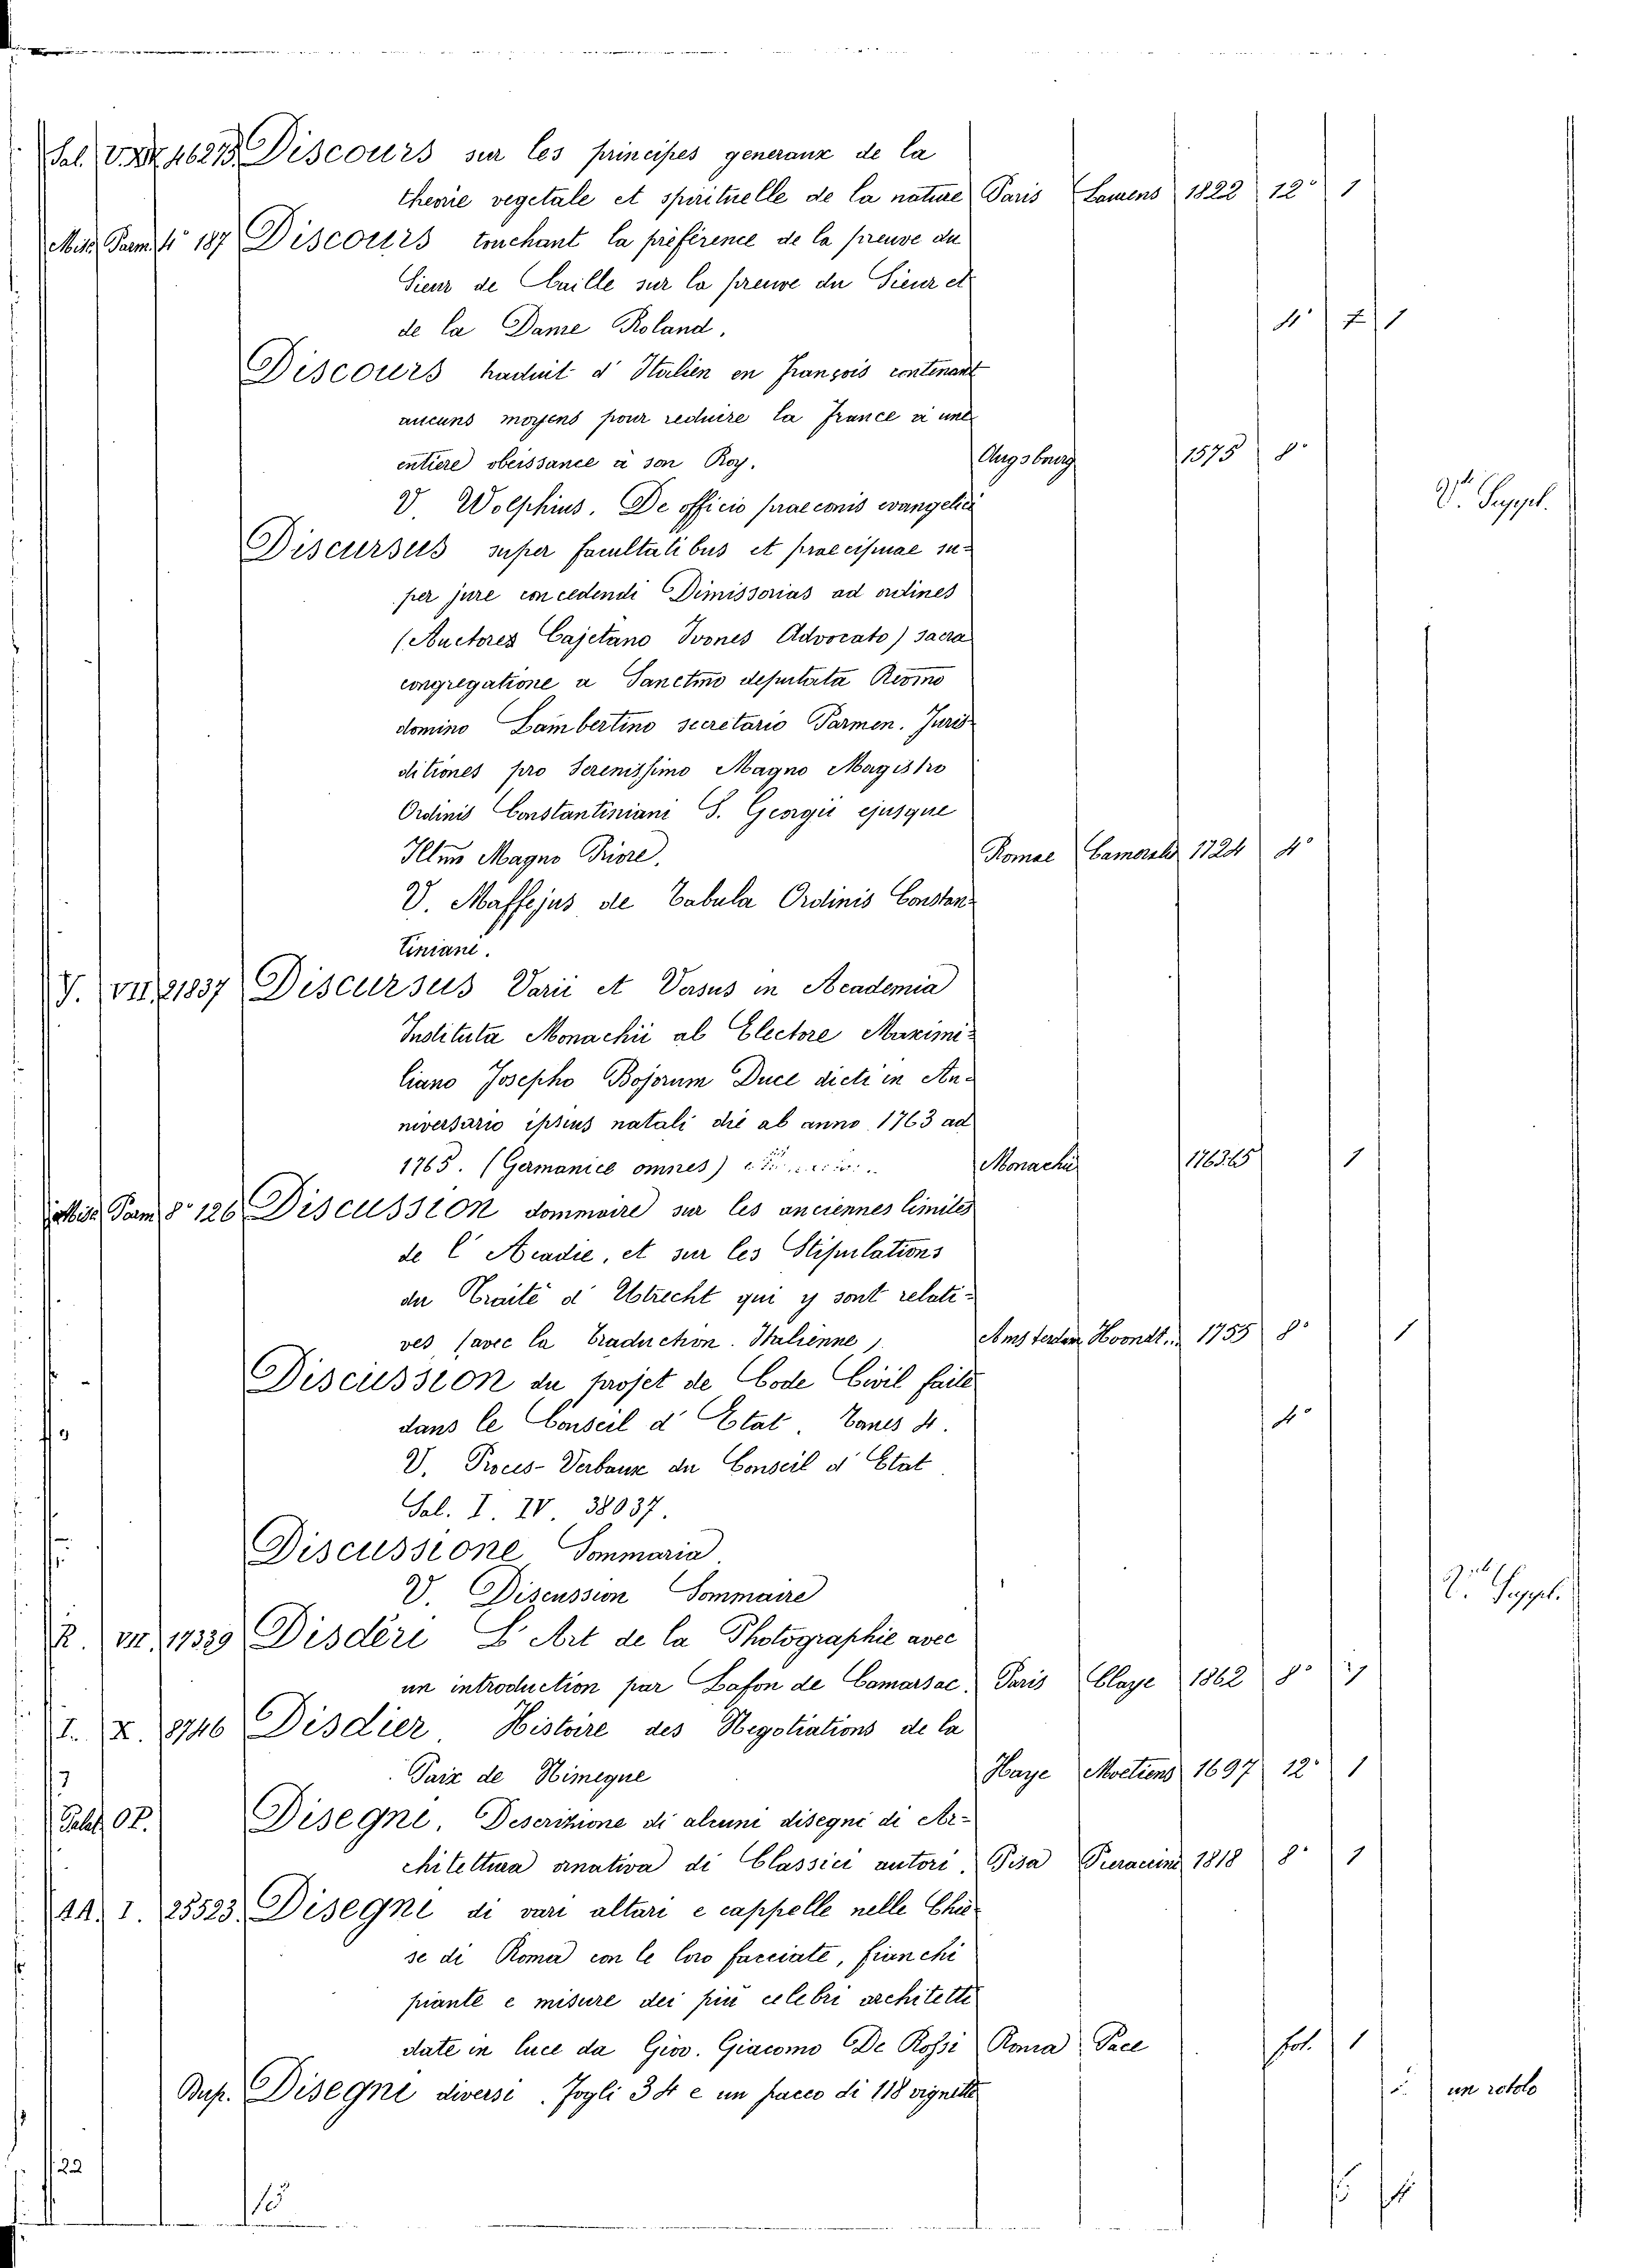 Sal. V. XV. 46273. Discours sur les principes generaux de la
theorie vegetale et spirituelle de la nature Paris Laurens 1822 12° 1
Misc. Parm. 4° 187 Discours touchant la préférence de la preuve du
Sieur de Caille sur la preuve du Sieur et
de la Dame Roland. 4° 1
Discours traduit d'Italien en François contenant
aucuns moyens pour reduire la France à une
entiere obeissance à son Roy. Augsburg 1575 8°
V. Wolphius. De officio praeconis evangelici V. Suppl.
Discursus super facultatibus et praecipuae su-
per jure concedendi Dimissorias ad ordines
(Auctores Cajetano Ivones Advocato) sacra
congregatione a Sanctmo deputata Revmo
domino Lambertino secretario Parmen. Juris
ditiones pro Serenissimo Magno Magistro
Ordinis Constantiniani S. Georgii ejusque
Illmo Magno Priore. Romae Cameralis 1724 4°
V. Maffejus de Tabula Ordinis Constan-
tiniani.
V. VII. 21837 Discursus Varii et Versus in Academia
Instituta Monachii ab Electore Maximi-
liano Josepho Bojorum Duce dicti in An-
niversario ipsius natali die ab anno 1763 ad
1765. (Germanice omnes) Monachii 1763.65 1
Misc. Parm. 8° 126 Discussion sommaire sur les anciennes limites
de l'Acadie, et sur les Stipulations
du Traité d'Utrecht qui y sont relati-
ves (avec la traduction Italienne) Amsterdam Hoondt. 1755 8° 1
Discussion du projet de Code Civil faite
dans le Conseil d'Etat. Tomes 4. 4°
V. Proces-Verbaux du Conseil d'Etat.
Sal. I. IV. 38037.
Discussione Sommaria
V. Discussion Sommaire V. Suppl.
R. VII. 17339 Disderi L'Art de la Photographie avec
un introduction par Lafon de Camarsac. Paris Claye 1862 8° 1
I. X. 8746 Disdier Histoire des Negotiations de la
Paix de Nimegue Haye Moetiens 1697 12° 1
Palat. Disegni. Descrizione di alcuni disegni di Ar-
chitettura ornativa di Classici autori. Pisa Pieraccini 1818 8° 1
AA. I. 25523. Disegni di vari altari e cappelle nelle Chie-
se di Roma con le loro facciate, fianchi
piante e misure dei più celebri architetti
date in luce da Giov. Giacomo De Rossi Roma Pace fol. 1
Bup. Disegni diversi. Fogli 34 e un pacco di 118 vignette un rotolo
22
15